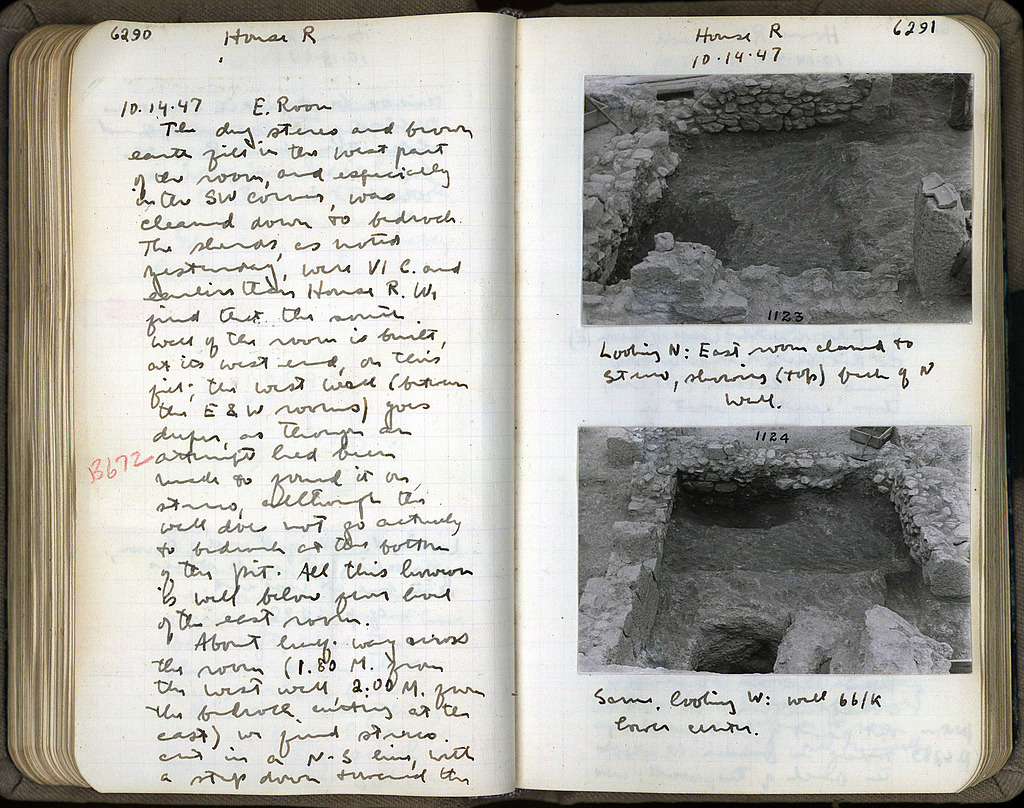 6290
House R
10.14.47 E. Room
The dug stereo and brown
earth fill in the west part
of the room, and especially
in the SW corner, was
cleaned down to bedrock.
The sherds, as noted
yesterday, were VI C. and
earlier than House R. We
find that the south
wall of the room is built,
at its west end, on this
fill; the west wall (between
the E & W rooms) goes
deeper, as though an
attempt had been
B672
made to found it on
stereo, although the
wall does not go actually
to bedrock at the bottom
of the pit. All this however
is well below floor level
of the east room.
About half-way across
the room (1.80 M. from
the west wall, 2.00 M. from
the bedrock cutting at the
east) we find stereo
cut in a N-S line, with
a step down toward the
6291
House R
10.14.47
1123
Looking N: East room cleaned to
stereo, showing (top) back of N
wall.
1124
Same, looking W: well 66/K
lower center.